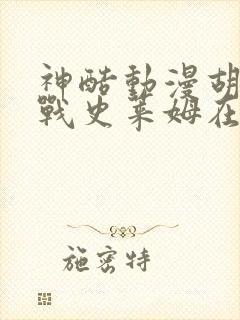 神酷動漫胡
戰史萊姆在
施密特